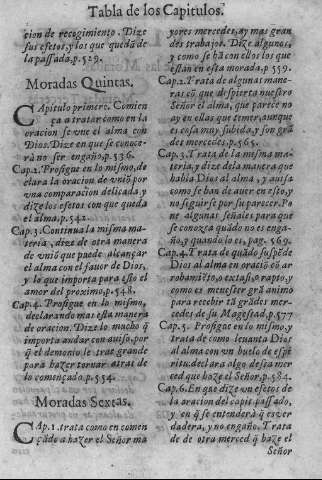 Tabla de los Capitulos.
cion de recogimiento. Dize
sus efetos, y los que quedã de
la passada, p. 529.
Moradas Quintas.
CApitulo primero. Comien
ça a tratar como en la
oracion se vne el alma con
Dios. Dize en que se conoce-
rà no ser engaño, p. 536.
Cap. 2. Prosigue en lo mismo, de
clara la oracion de vniõ por
vna comparacion delicada, y
dize los efetos con que queda
el alma, p. 542.
Cap. 3. Continua la misma ma-
teria, dize de otra manera
de vniõ que puede alcançar
el alma con el fauor de Dios,
y lo que importa para esto el
amor del proximo, p. 548.
Cap. 4. Prosigue en lo mismo,
declarando mas esta manera
de oracion. Dize lo mucho q̃
importa andar con auiso, por
q̃ el demonio le trae grande
para hazer tornar atras de
lo començado, p. 554.
Moradas Sextas.
CAp. 1. trata como en comen
çãdo a hazer el Señor ma
yores mercedes, ay mas gran
des trabajos. Dize algunos,
y como se hã con ellos los que
estàn en esta morada, p. 559.
Cap. 2. Trata de algunas mane-
ras cõ que despierta nuestro
Señor el alma, que parece no
ay en ellas que temer, aunque
es cosa muy subida, y son grã
des mercedes, p. 565.
Cap. 3. Trata de la misma ma-
teria, y dize de la manera que
habla Dios al alma, y auisa
como se han de auer en esto, y
no seguirse por su parecer. Po
ne algunas señales para que
se conozca quãdo no es enga-
ño, y quando lo es, pag. 569.
Cap. 4. Trata de quãdo suspẽde
Dios al alma en oraciõ cõ ar
robamiẽto, o extasis, o rapto, y
como es menester grã animo
para recibir tã grãdes merce-
des de su Magestad, p. 577
Cap. 5. Prosigue en lo mismo, y
trata de como leuanta Dios
al alma con vn buelo de espi-
ritu, declara algo desta mer
ced que haze el Señor, p. 584.
Cap. 6. En que dize vn efetos de
la oracion del capit. passado,
y en q̃ se entenderà q̃ es ver
dadera, y no engaño. Trata
de otra merced q̃ haze el
Señor